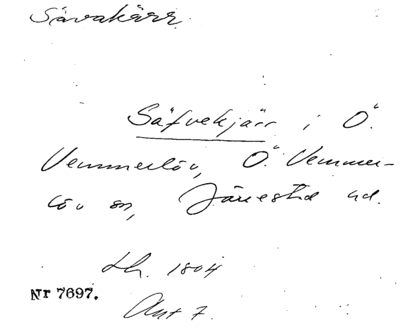 Sävakärr
Säfvekjärr i Ö.
Vemmerlöv, Ö. Vemmer-
löv sn, Järrestad hd.
Lh. 1804
Nr 7697.
Akt 7.